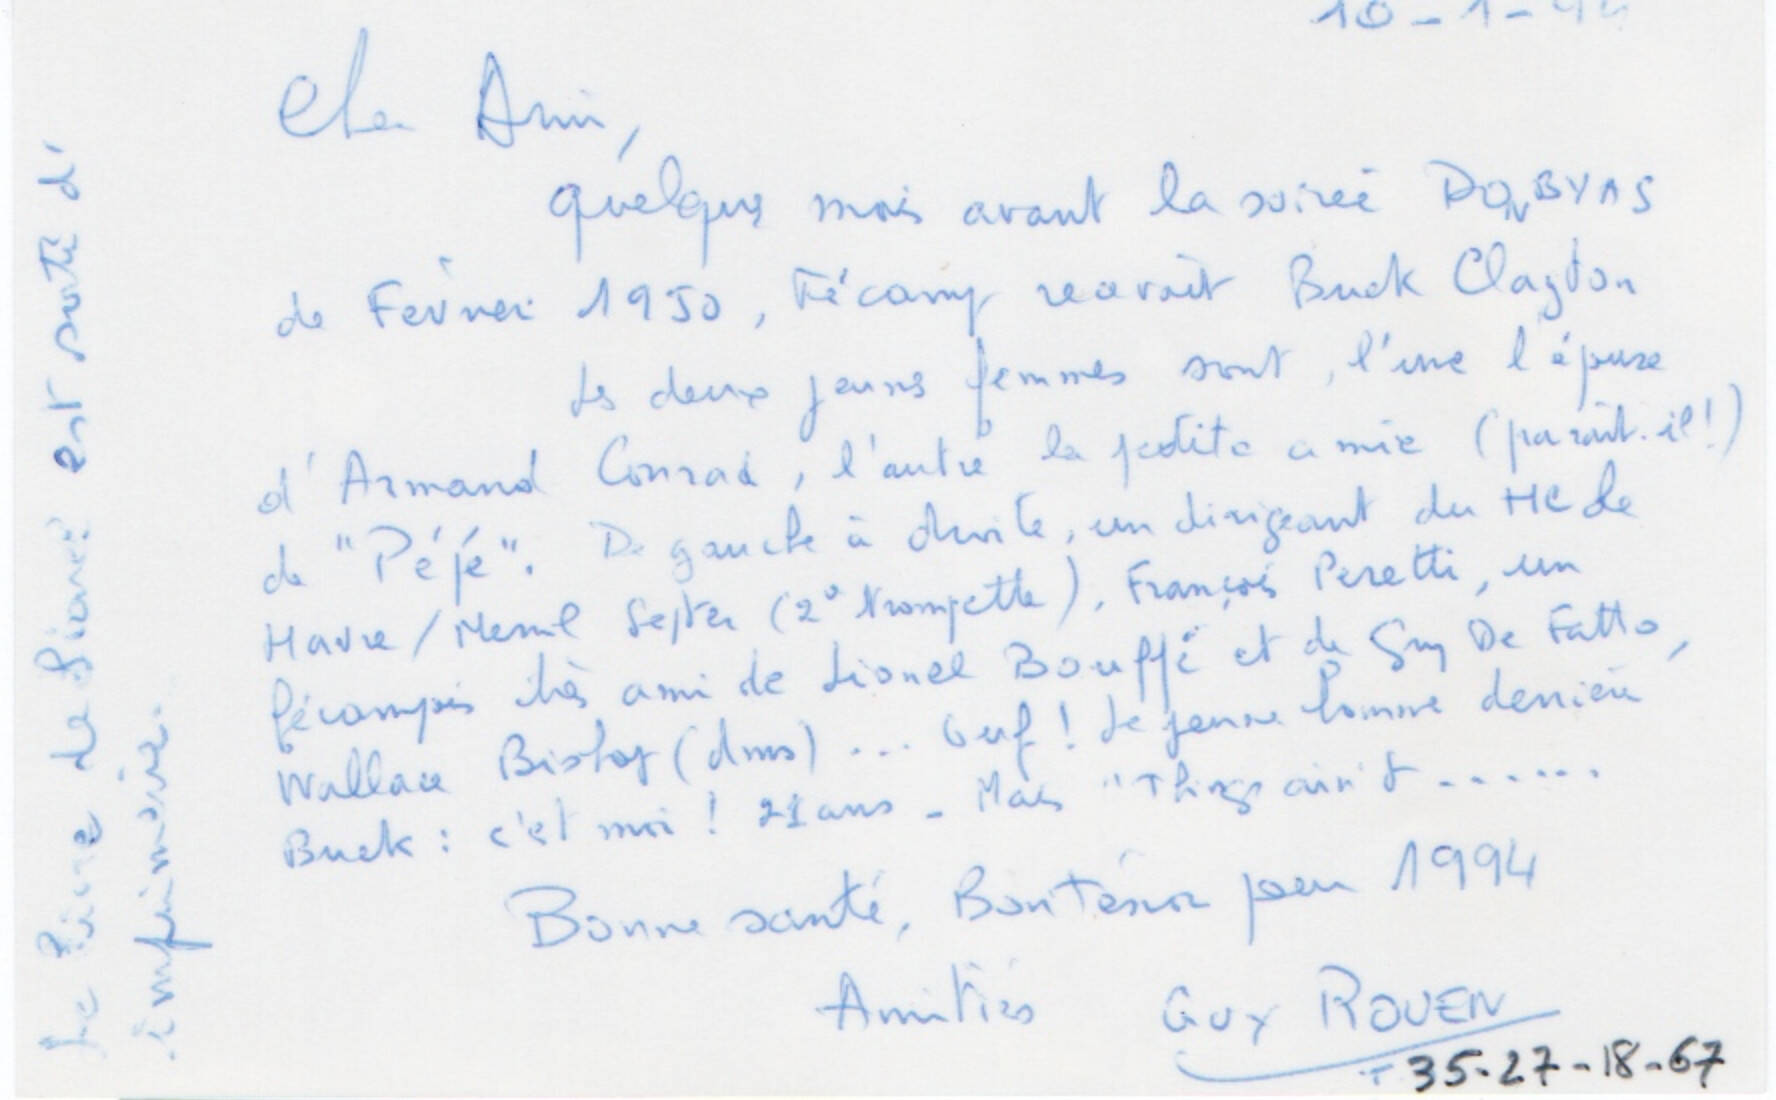 10-1-94
Cher Ami,
quelques mois avant la soirée DON BYAS
de Février 1950, Fécamp recevait Buck Clayton
Les deux jeunes femmes sont, l'une l'épouse
d'Armand Conrad, l'autre la petite amie (paraît-il!)
de "Pépé". De gauche à droite, un dirigeant du HC Le
Havre / Merril Stepter (2° trompette), François Peretti, un
fécampois très ami de Lionel Bouffé et de Guy De Fatto,
Wallace Bishop (dms) ... Ouf! Le jeune homme derrière
Buck : c'est moi ! 21 ans - Mais "Things ain't .......
Bonne santé, pour 1994
Amitiés Guy ROUEN
T 35-27-18-67
Le livre de est sorti d'
imprimerie.